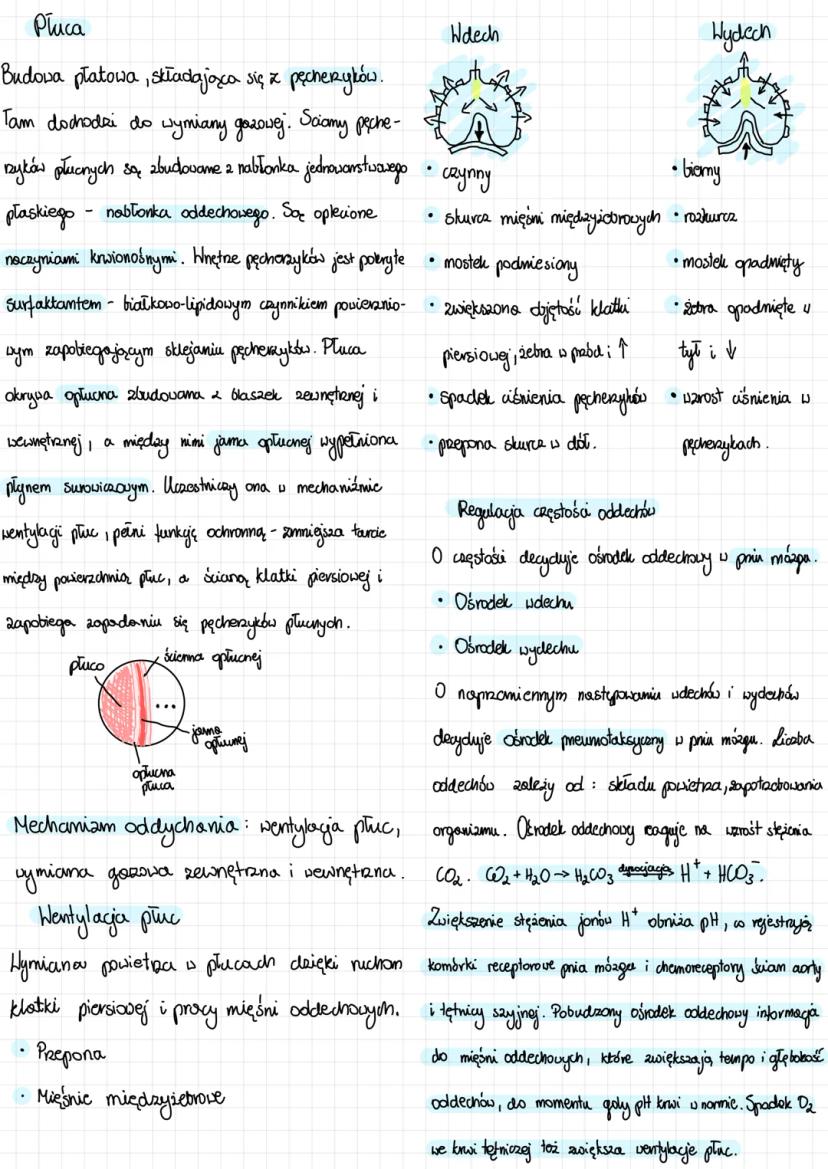 Płuca
Budowa płatowa, składająca się z pęcherzyków.
Tam dochodzi do wymiany gazowej. Ściany pęche-
rzyków płucnych są zbudowane z nabłonka jednowarstwowego
płaskiego - nabłonka oddechowego. Są oplecione
naczyniami krwionośnymi. Wnętrze pęcherzyków jest pokryte
surfaktantem - białkowo-lipidowym czynnikiem powierznio-
wym zapobiegającym sklejaniu pęcherzyków. Płuca
okrywa opłucna zbudowana z blaszek zewnętrznej i
wewnętrznej, a między nimi jama opłucnej wypełniona
płynem surowiczowym. Uczestniczy ona w mechaniźmie
wentylacji płuc, pełni funkcję ochronną - zmniejsza tarcie
między powierzchnią płuc, a ścianą klatki piersiowej i
zapobiega zapadaniu się pęcherzyków płucnych.
płuco
ścienna opłucnej
...
jama
opłucnej
opłucna
płuca
Mechanizm oddychania: wentylacja płuc,
wymiana gazowa zewnętrzna i wewnętrzna.
Wentylacja płuc
Wymiana powietrza w płucach dzięki ruchom
klatki piersiowej i pracy mięśni oddechowych.
• Przepona
• Mięśnie międzyżebrowe
Wdech
• czynny
• skurcz mięśni międzyżebrowych
• mostek podniesiony
• zwiększona objętość klatki
piersiowej, żebra w przód i ↑
• spadek ciśnienia pęcherzyków
• przepona skurcz w dół.
Wydech
• bierny
• rozkurcz
• mostek opadnięty
• żebra opadnięte w
tył i ↓
• wzrost ciśnienia w
pęcherzykach.
Regulacja częstości oddechów
O częstości decyduje ośrodek oddechowy w pniu mózgu.
• Ośrodek wdechu
• Ośrodek wydechu
O naprzemiennym następowaniu wdechów i wydechów
decyduje ośrodek pneumotaksyczny w pniu mózgu. Liczba
oddechów zależy od: składu powietrza, zapotrzebowania
organizmu. Ośrodek oddechowy reaguje na wzrost stężenia
CO₂. CO₂ + H₂O → H₂CO₃ dysocjacja→ H⁺ + HCO₃⁻.
Zwiększenie stężenia jonów H⁺ obniża pH, co rejestrują
komórki receptorowe pnia mózgu i chemoreceptory ścian aorty
i tętnicy szyjnej. Pobudzony ośrodek oddechowy informacja
do mięśni oddechowych, które zwiększają tempo i głębokość
oddechów, do momentu gdy pH krwi w normie. Spadek O₂
we krwi tętniczej też zwiększa wentylacje płuc.